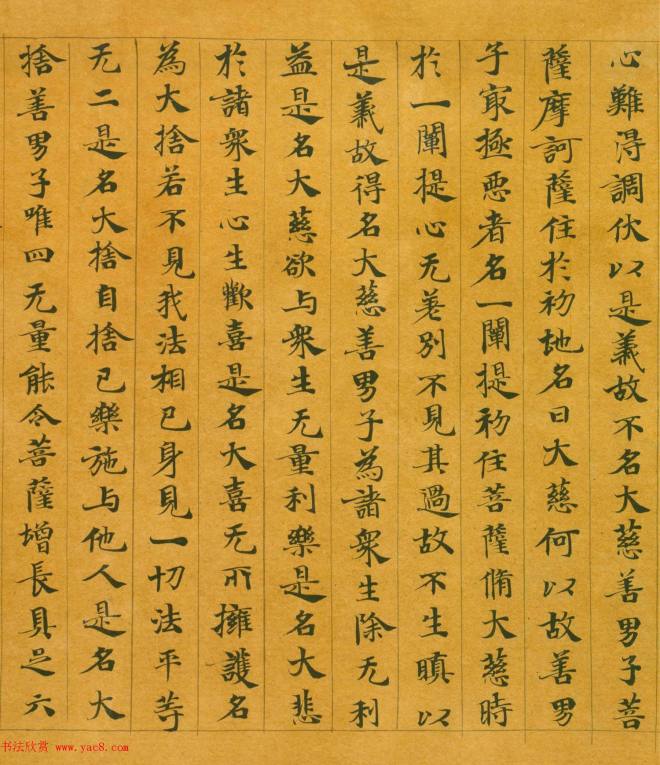 心難得調伏以是義故不名大慈善男子菩
薩摩訶薩住於初地名曰大慈何以故善男
子冣極惡者名一闡提初住菩薩脩大慈時
於一闡提心无差別不見其過故不生瞋以
是義故得名大慈善男子為諸衆生除无利
益是名大慈欲与衆生无量利樂是名大悲
於諸衆生心生歡喜是名大喜无所擁護名
為大捨若不見我法相己身見一切法平等
无二是名大捨自捨己樂施与他人是名大
捨善男子唯四无量能令菩薩增長具足六
书法欣赏 www.yac8.com